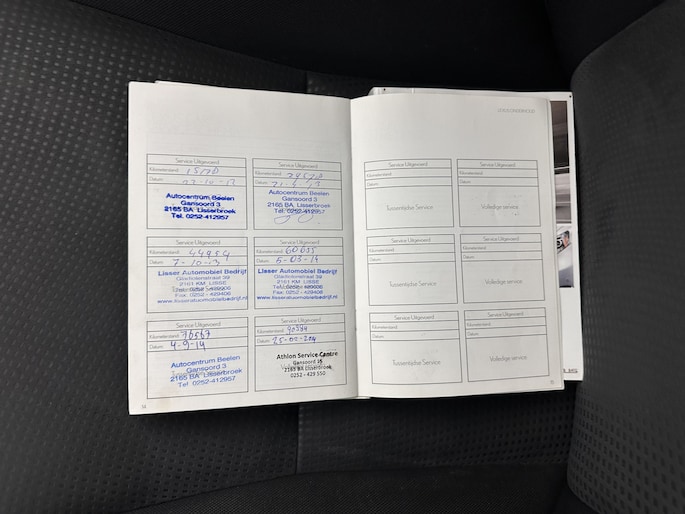 ONDERHOUD
Service Uitgevoerd
Kilometerstand:
Datum:
Autocentrum Beelen
Gansoord 3
2165 BA Lisserbroek
Tel. 0252-412957
Service Uitgevoerd
Kilometerstand:
Datum: 21-6-13
Autocentrum Beelen
Gansoord 3
2165 BA Lisserbroek
Tel. 0252-412957
Service Uitgevoerd
Kilometerstand: 44954
Datum: 7-10-13
Lisser Automobiel Bedrijf
Gladiolenstraat 39
2161 KM LISSE
Fax: 0252 - 429406
www.lisserautomobielbedrijf.nl
Service Uitgevoerd
Kilometerstand: 60635
Datum: 5-03-14
Lisser Automobiel Bedrijf
Gladiolenstraat 39
2161 KM LISSE
Fax: 0252 - 429406
www.lisserautomobielbedrijf.nl
Service Uitgevoerd
Kilometerstand: 76567
Datum: 4-9-14
Autocentrum Beelen
Gansoord 3
2165 BA Lisserbroek
Tel. 0252-412957
Service Uitgevoerd
Kilometerstand:
Datum:
Athlon Service Centre
Gansoord 3
2165 BA Lisserbroek
0252 - 429 550
14
Service Uitgevoerd
Kilometerstand:
Datum:
Tussentijdse Service
Service Uitgevoerd
Kilometerstand:
Datum:
Volledige service
Service Uitgevoerd
Kilometerstand:
Datum:
Tussentijdse Service
Service Uitgevoerd
Kilometerstand:
Datum:
Volledige service
Service Uitgevoerd
Kilometerstand:
Datum:
Tussentijdse Service
Service Uitgevoerd
Kilometerstand:
Datum:
Volledige service